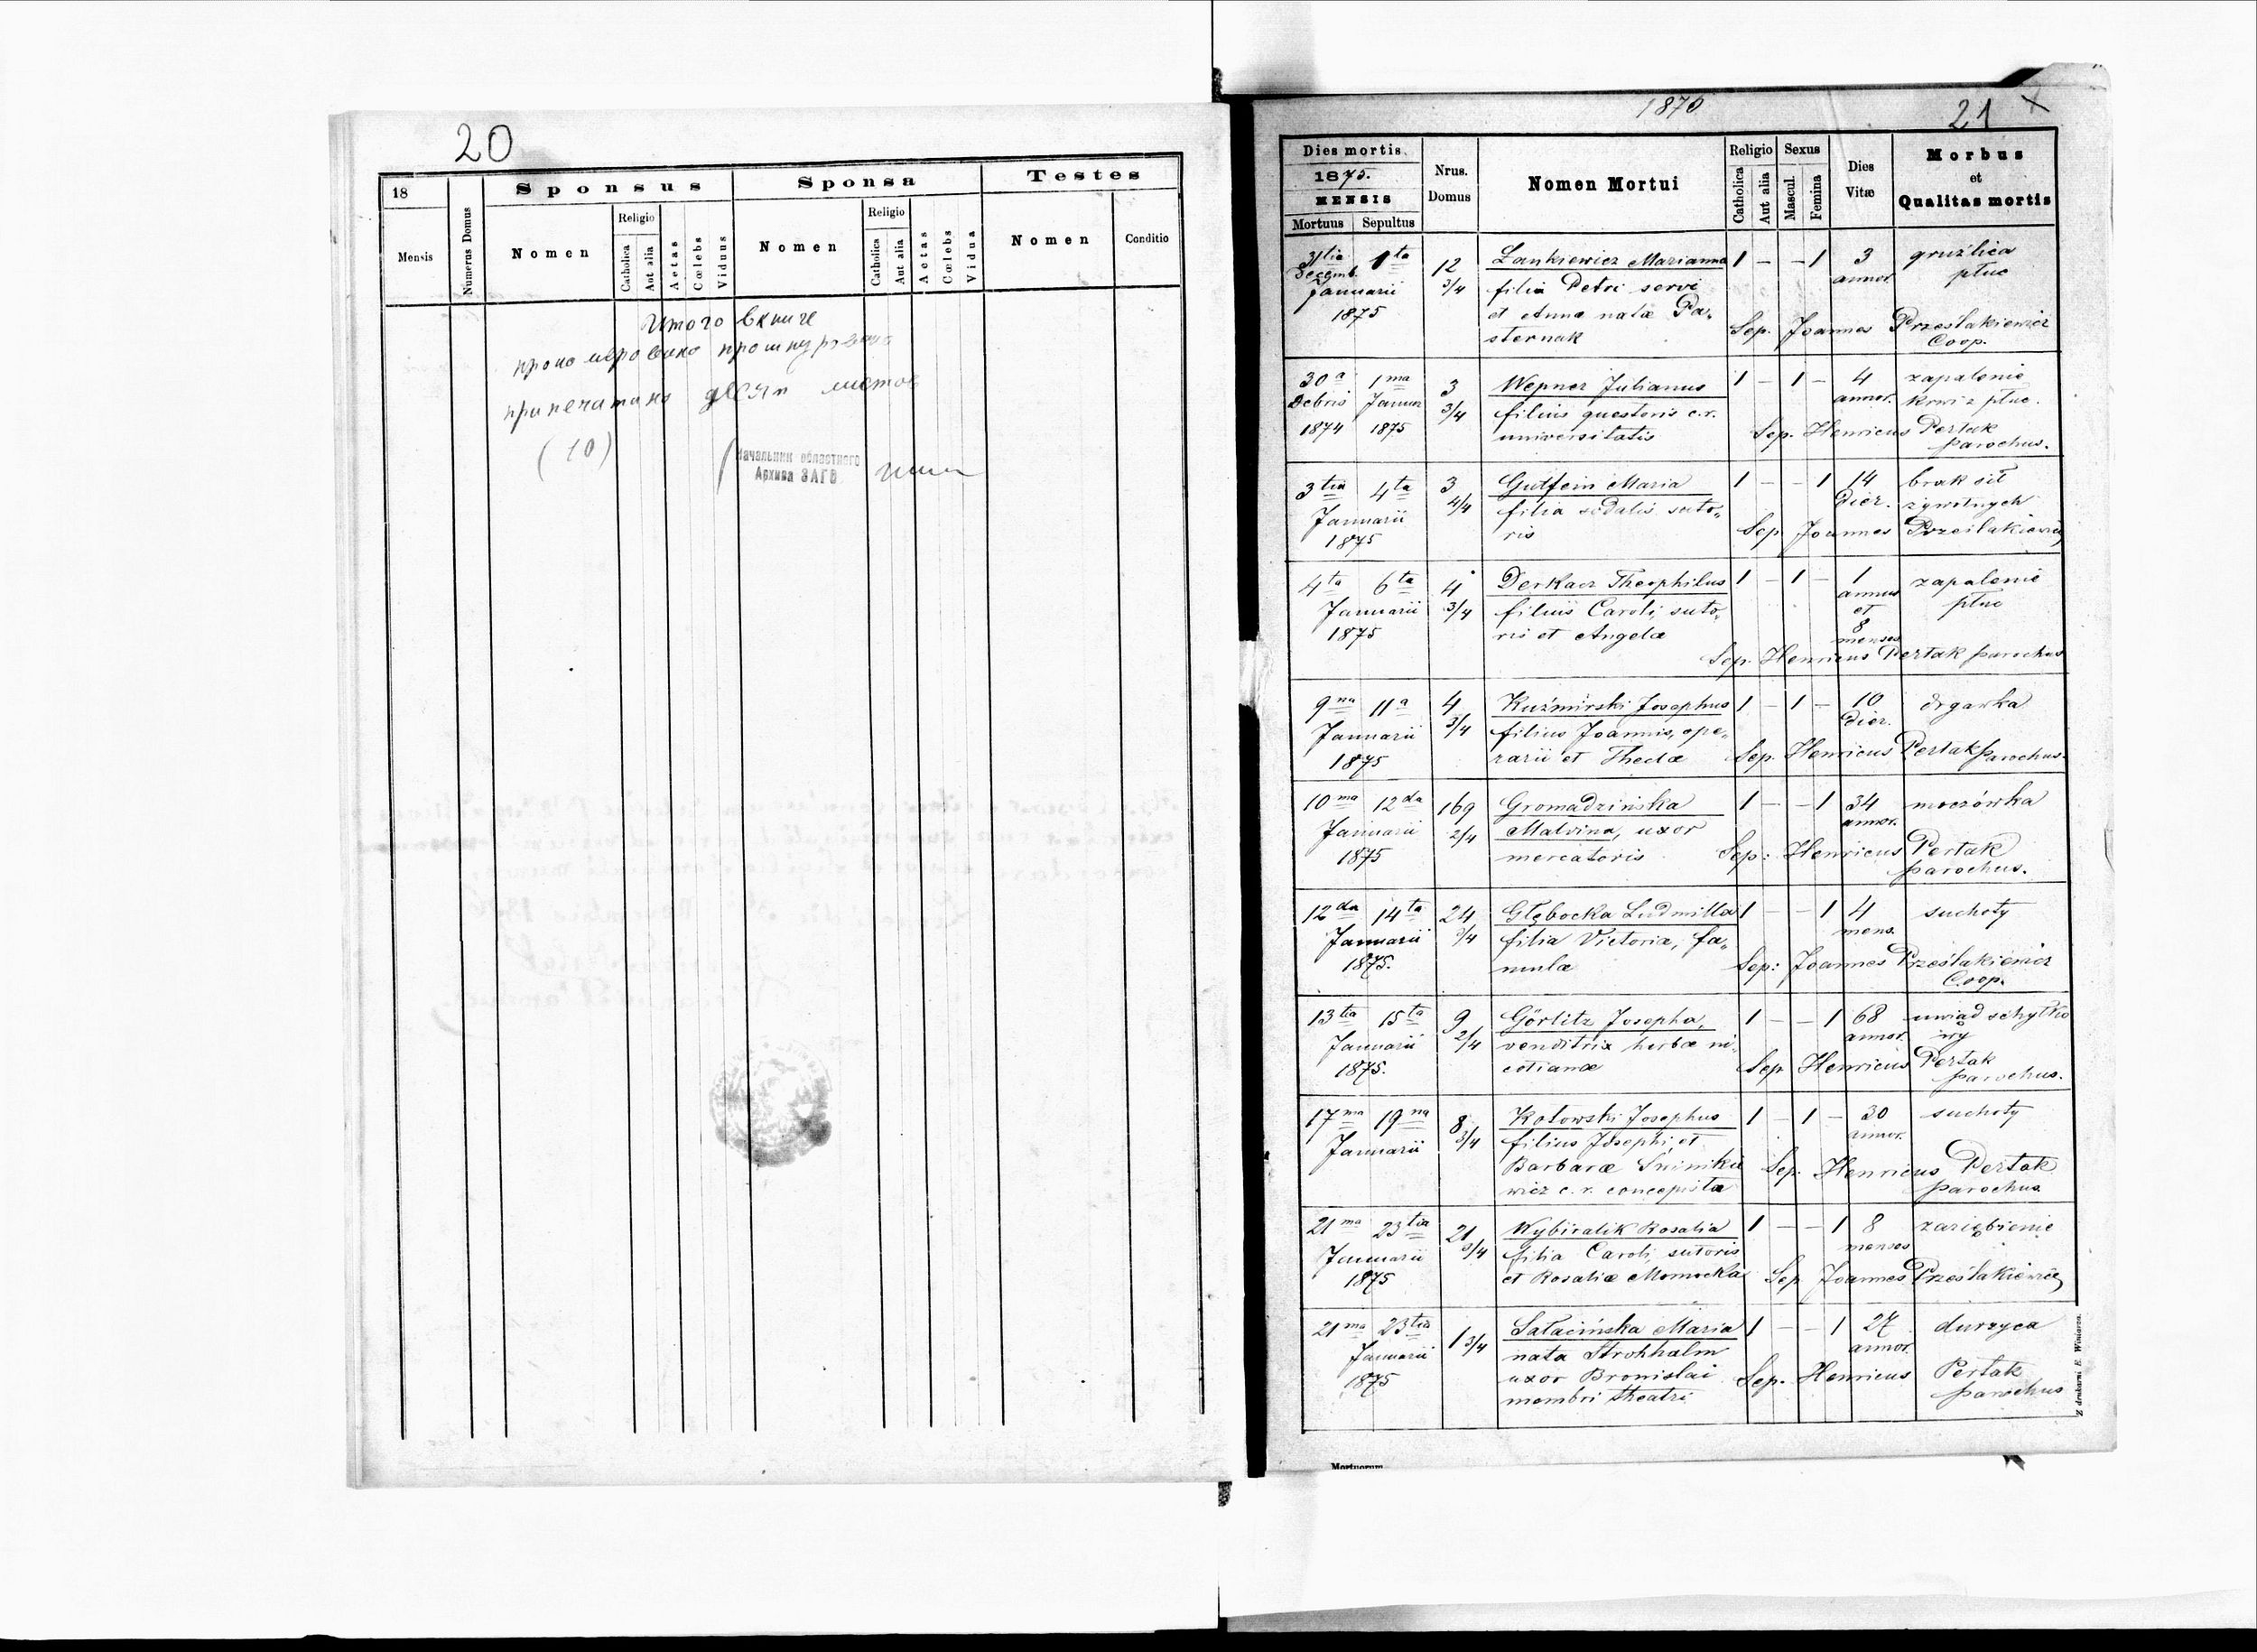 20
18
Sponsus
Sponsa
Testes
Mensis
Numerus Domus
Nomen
Religio
Catholica
Aut alia
Aetas
Cœlebs
Viduus
Nomen
Religio
Catholica
Aut alia
Aetas
Cœlebs
Vidua
Nomen
Conditio
Итого в книге
пронумеровано прошнуровано
припечатано десять листов
(10)
Начальник областного
Архива ЗАГС
1870
21
Dies mortis
1875.
MENSIS
Mortuus
Sepultus
Nrus.
Domus
Nomen Mortui
Religio
Catholica
Aut alia
Sexus
Mascul.
Femina
Dies
Vitæ
Morbus
et
Qualitas mortis
31tia 1ta 12 Lankiewicz Marianna 1 – – 1 3 gruźlica
Decemb. 3/4 filia Petri servi annor. płuc
Januarii et Annæ natæ Pa-
1875 sternak Sep. Joannes Prześlakiewicz
Coop.
30a 1ma 3 Wepner Julianus 1 – 1 – 4 zapalenie
Debris Januar 3/4 filius questoris c.r. annor. krwi z płuc.
1874 1875 universitatis Sep. Henricus Pertak
parochus.
3tia 4ta 3 Gutfein Maria 1 – – 1 14 brak sił
Januarii 4/4 filia sodalis suto- dier. żywotnych
1875 ris Sep Joannes Prześlakiewicz
4ta 6ta 4 Derkacz Theophilus 1 – 1 – 1 zapalenie
Januarii 3/4 filius Caroli, suto- annus płuc
1875 ris et Angelæ et
8
menses
Sep. Henricus Pertak parochus
9na 11a 4 Kuźmirski Josephus 1 – 1 – 10 drgawka
Januarii 3/4 filius Joannis, ope- dier.
1875 rarii et Theclæ Sep. Henricus Pertak parochus.
10ma 12da 169 Gromadzińska 1 – – 1 34 moczówka
Januarii 2/4 Malvina, uxor annor.
1875 mercatoris Sep: Henricus Pertak
parochus.
12da 14ta 24 Głębocka Ludmilla 1 – – 1 4 suchoty
Januarii 3/4 filia Victoriæ, fa- mens.
1875. mulæ Sep: Joannes Prześlakiewicz
Coop.
13tia 15ta 9 Görlitz Josepha, 1 – – 1 68 uwiąd schyłko
Januarii 2/4 venditrix herbæ ni- annor. wy
1875. cotianæ Sep Henricus Pertak
parochus.
17ma 19na 8 Kotowski Josephus 1 – 1 – 30 suchoty
Januarii 3/4 filius Josephi et annor.
Barbaræ Sep. Henricus Pertak
wicz c.r. concepista parochus
21ma 23tia 21 Wybiralik Rosalia 1 – – 1 8 zaziębienie
Januarii 3/4 filia Caroli, sutoris menses
1875 et Rosaliæ Momocka Sep Joannes Prześlakiewicz
21ma 23tia 1 3/4 Sałacińska Maria 1 – – 1 27 durzyca
Januarii nata Strohhalm annor.
1875 uxor Bronislai Sep. Henricus Pertak
membri theatri parochus
Z drukarni E. Winiarza.
Mortuorum